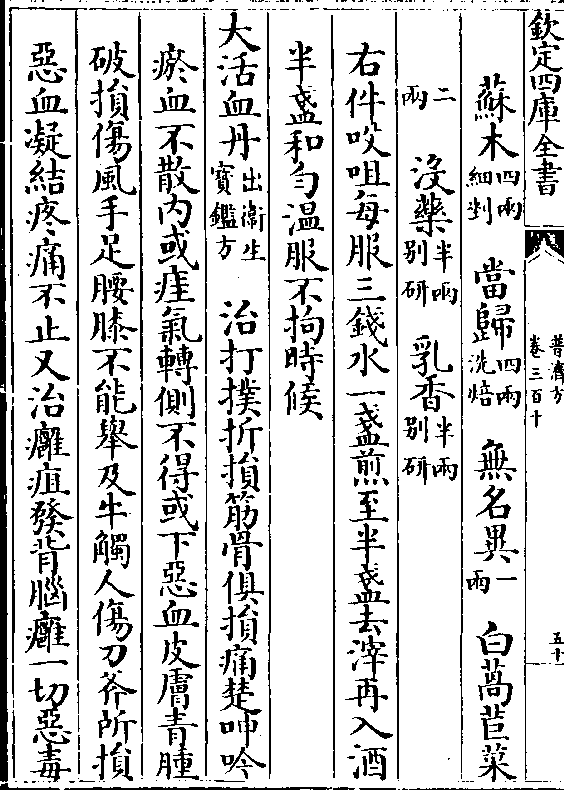 欽定四庫全書
普濟方
卷三百十
五十
蘇木四兩細剉 當歸四兩洗焙 無名異一兩 白萵苣菜
二兩 沒藥半兩别研 乳香半兩别研
右件㕮咀每服三錢水一盞煎至半盞去滓再入酒
半盞和匀温服不拘時候
大活血丹出衛生寳鑑方 治打撲折損筋骨俱損痛楚呻吟
瘀血不散内或疰氣轉側不得或下惡血皮膚青腫
破損傷風手足腰膝不能舉及牛觸人傷刀斧所損
惡血凝結疼痛不止又治癰疽發背腦癰一切惡毒